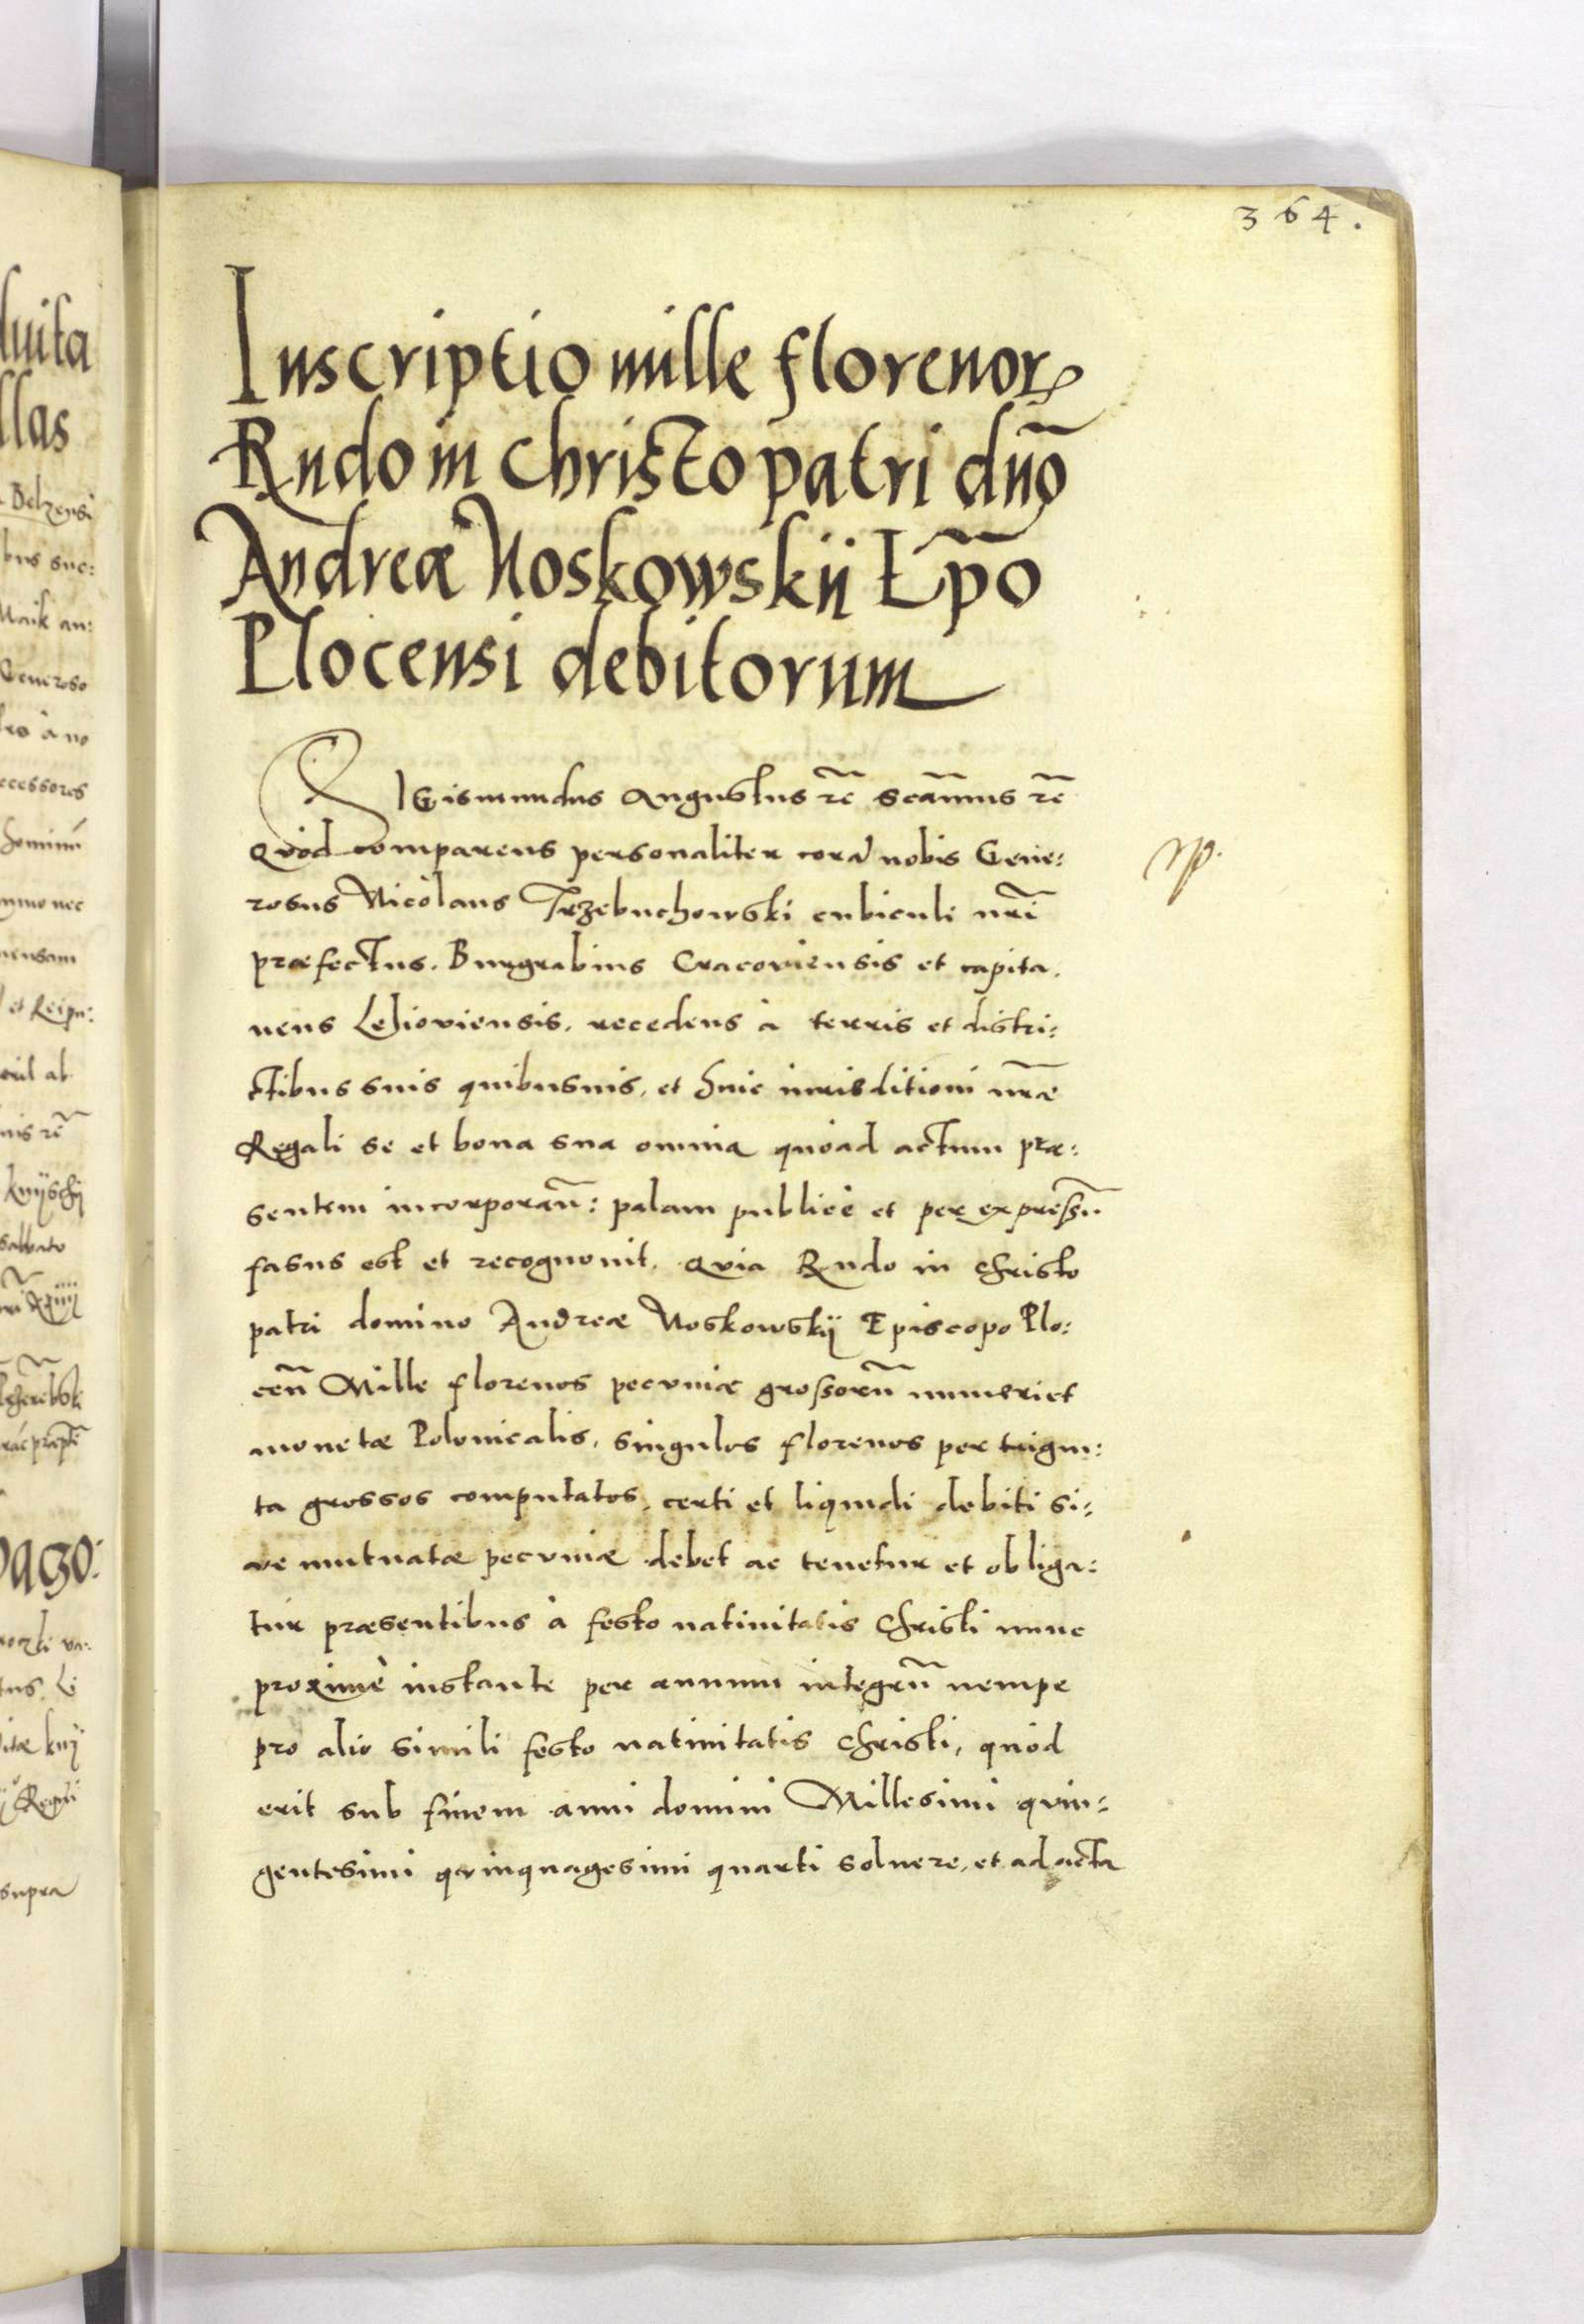 364.
Inscriptio mille florenorꝝ
Rndo in Christo patri dño
Andreæ Noskowskii Ep̃o
Plocensi debitorum
SIGismundus Augustus rc̃ Scãmus rc̃
Quòd comparens personaliter corã nobis Gene:
rosus Nicolaus Trzebuchowski cubiculi nr̃i
præfectus. Burgrabius Cracoviensis et capita.
neus Leloviensis, recedens à terris et distri:
ctibus suis quibusuis, et huic iurisditioni nr̃æ
Regali se et bona sua omnia quòad actum præ:
sentem incorporañ: palam publicè et per expressũ
fasus est et recognouit. Quia Rndo in christo
patri domino Andreæ Noskowskij Episcopo Plo:
ceñ Mille florenos pecuniæ grossorũ numeri et
monetæ Polonicalis, singulos florenos per trigin:
ta grossos computatos, certi et liquidi debiti si:
ve mutuatæ pecuniæ debet ac tenetur et obliga:
tur præsentibus à festo natiuitatis Christi nunc
proximè instante per annum integrũ nempe
pro alio simili festo natiuitatis christi, quòd
erit sub finem anni domini Millesimi quin:
gentesimi quinquagesimi quarti soluere, et ad acta